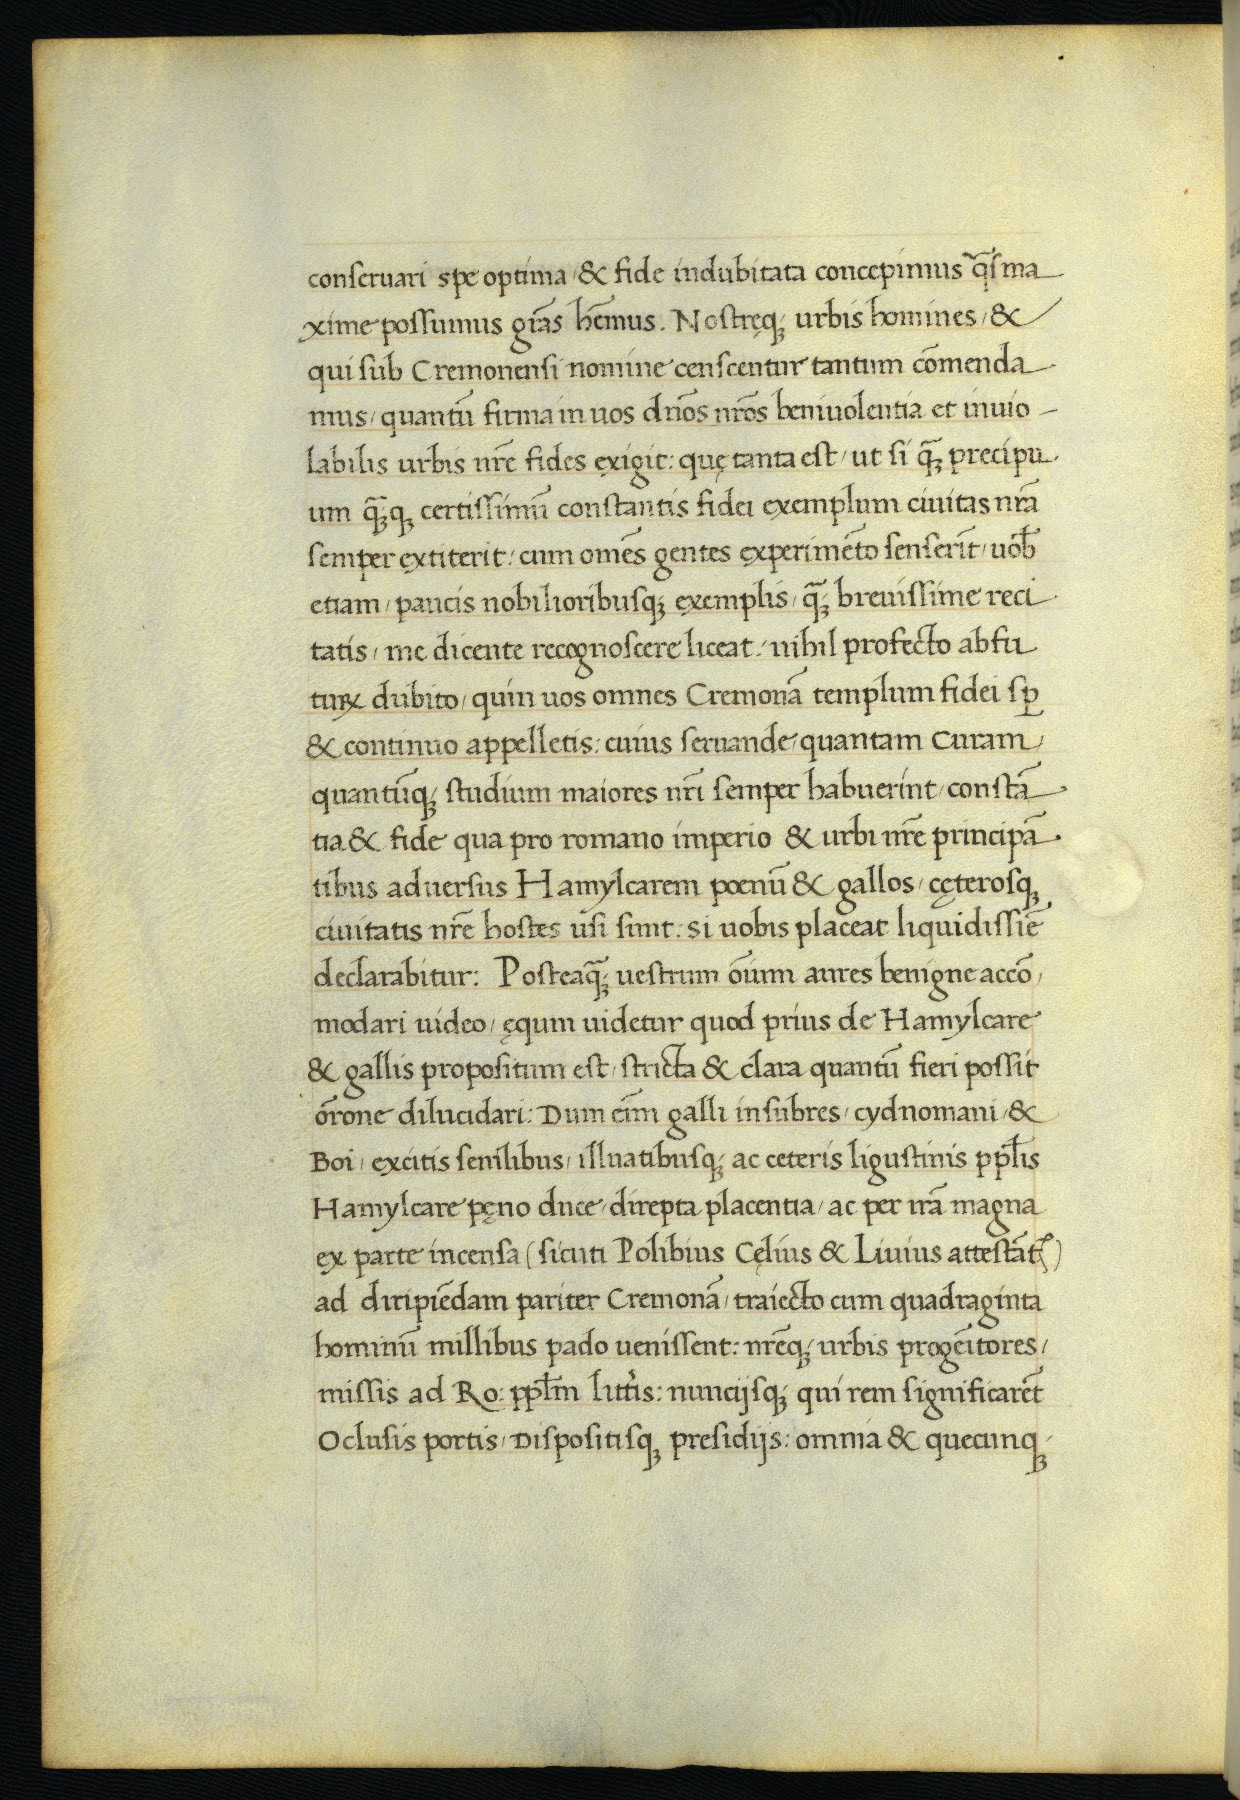 conseruari spe optima / & fide indubitata concepimus q̃sma
xime possumus grãs hẽmus. Nostręq; urbis homines / &
qui sub Cremonensi nomine censcentur tantum cõmenda
mus / quantũ firma in uos dños nr̃os beniuolentia et inuio –
labilis urbis nr̃e fides ęxigit: quę tanta est / ut si q̃ȝ precipu
um q̃ȝq; certissimũ constantis fidei exemplum ciuitas nr̃a
semper extiterit: cum omẽs gentes ęxperimẽto senserĩt / uob̃
etiam / paucis nobilioribusq; ęxemplis / q̃ȝ breuissime reci
tatis / me dicente recognoscere liceat: nihil profecto abfu
tuꝝ dubito / quin uos omnes Cremonã templum fidei sꝑ
& continuo appelletis: cuius seruande / quantam Curam /
quantũq; studium maiores nr̃i semper habuerint / constã
tia & fide qua pro romano imperio & urbi nr̃e principã
tibus aduersus Hamylcarem poenũ & gallos / cęterosq;
ciuitatis nr̃e hostes usi sunt: si uobis placeat liquidissiẽ
declarabitur: Posteaq̃ȝ uestrum oĩum aures benigne accõ /
modari uideo / ęqum uidetur quod prius de Hamylcare
& gallis propositum est / stricta & clara quantũ fieri possit
õrone dilucidari: Dum eĩm galli insubres / cydnomani / &
Boi / excitis senilibus / illuatibusq; ac ceteris ligustinis ppl̃is
Hamylcare pęno duce / direpta placentia / ac per irã magna
ex parte incensa (sicuti Polibius Cęlius & Liuius attestãt᷑)
ad diripiẽdam pariter Cremonã / traiecto cum quadraginta
hominũ millibus pado uenissent: nr̃eq; urbis progẽitores /
missis ad Ro: ppl̃m litt̃is: nuncijsq; qui rem significarẽt
Oclusis portis / Dispositisq; presidijs: omnia & quecunq;